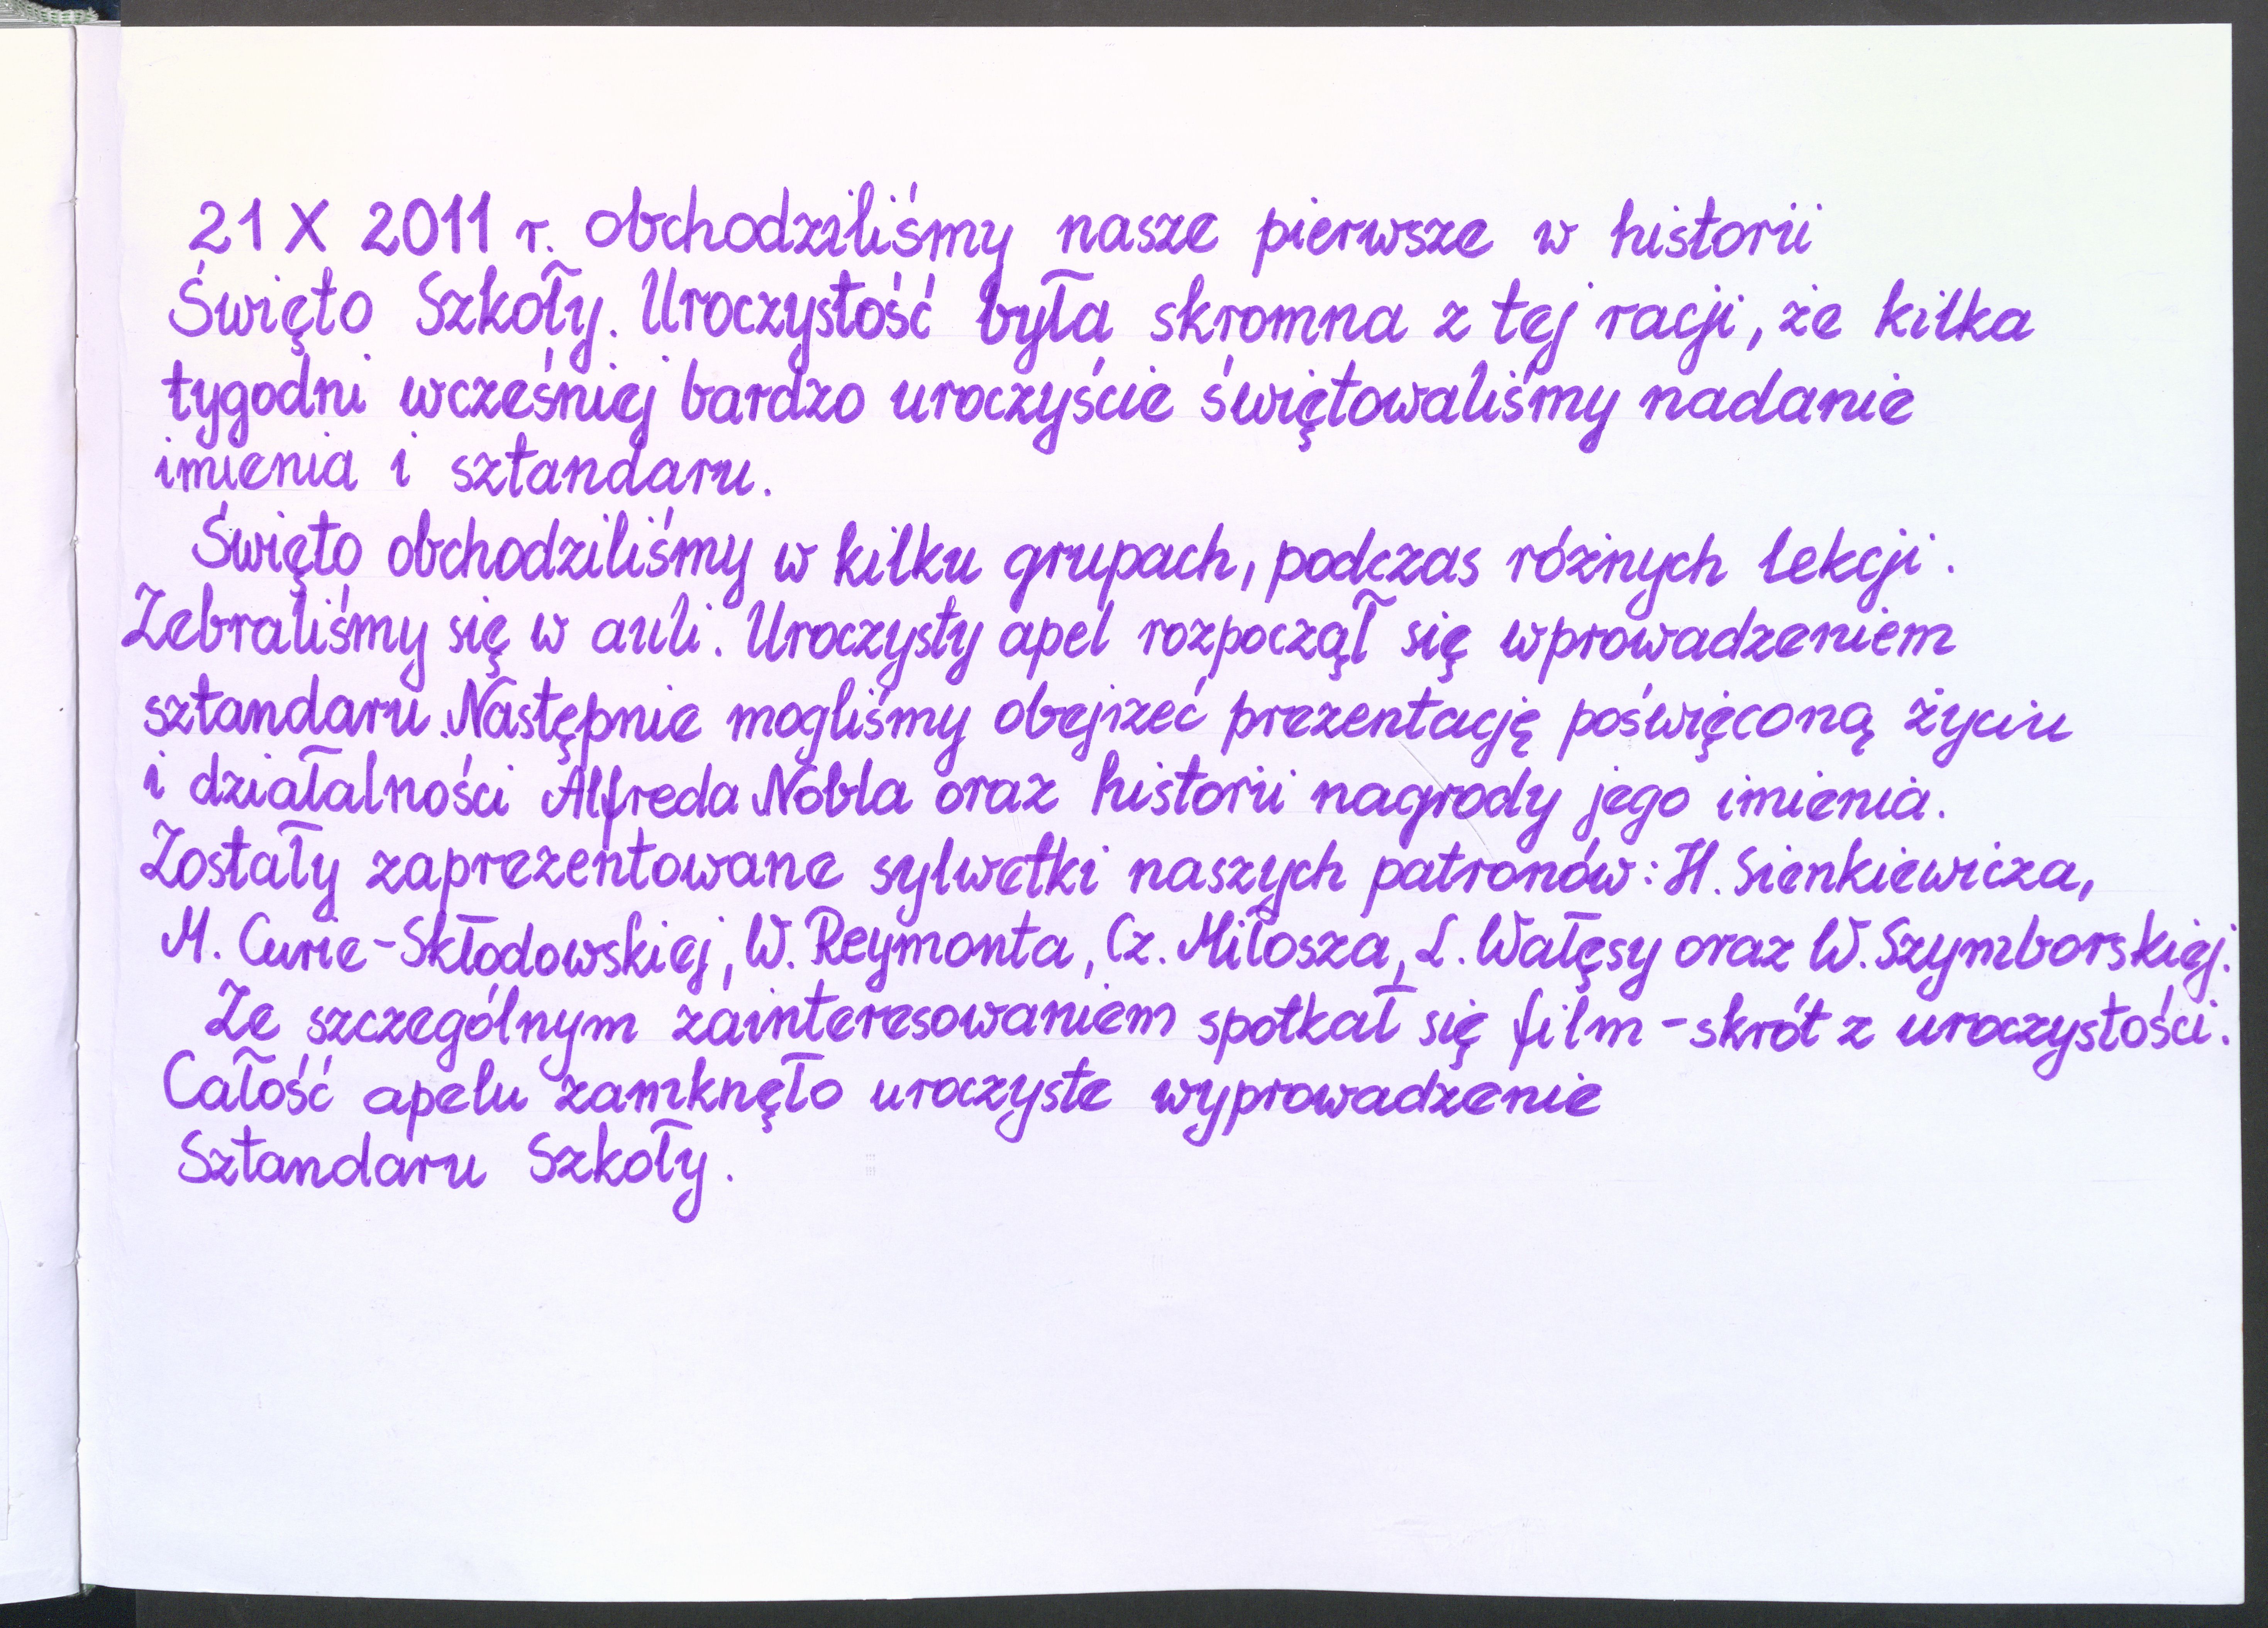 21 X 2011 r. obchodziliśmy nasze pierwsze w historii
Święto Szkoły. Uroczystość była skromna z tej racji, że kilka
tygodni wcześniej bardzo uroczyście świętowaliśmy nadanie
imienia i sztandaru.
Święto obchodziliśmy w kilku grupach, podczas różnych lekcji.
Zebraliśmy się w auli. Uroczysty apel rozpoczął się wprowadzeniem
sztandaru. Następnie mogliśmy obejrzeć prezentację poświęconą życiu
i działalności Alfreda Nobla oraz historii nagrody jego imienia.
Zostały zaprezentowane sylwetki naszych patronów: H. Sienkiewicza,
M. Curie-Skłodowskiej, W. Reymonta, Cz. Miłosza, L. Wałęsy oraz W. Szymborskiej.
Ze szczególnym zainteresowaniem spotkał się film - skrót z uroczystości.
Całość apelu zamknęło uroczyste wyprowadzenie
Sztandaru Szkoły.